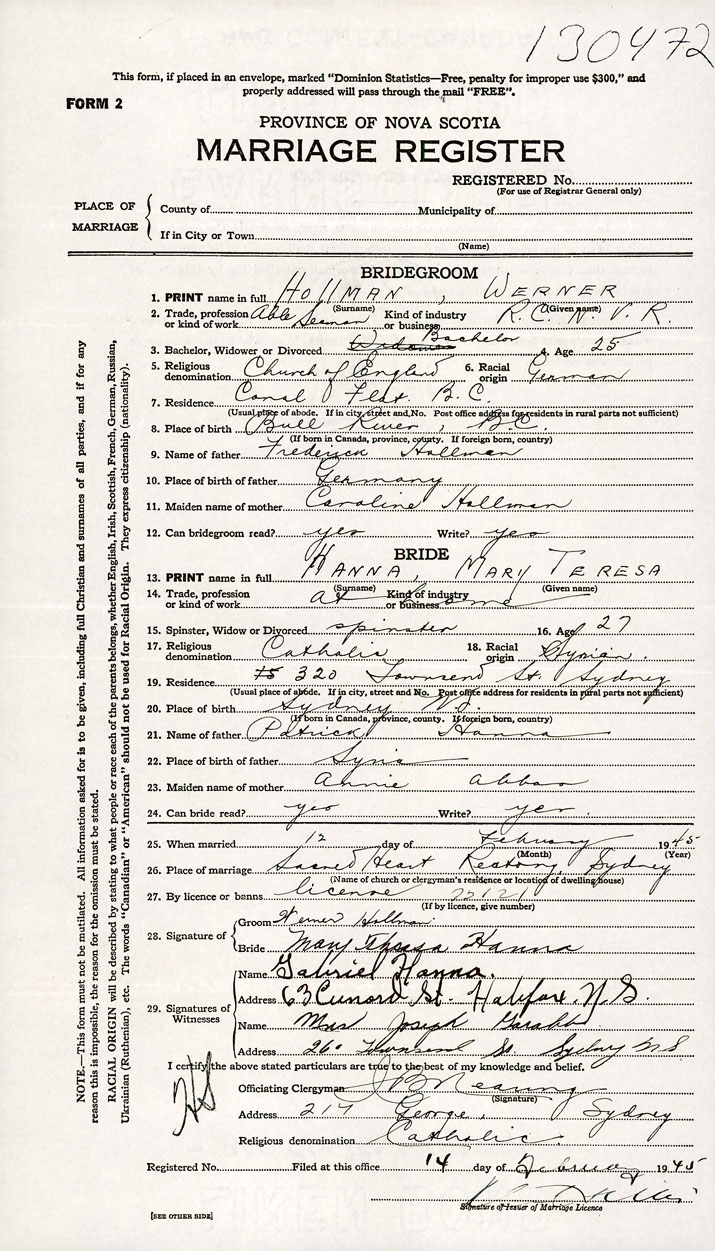 130472
This form, if placed in an envelope, marked "Dominion Statistics—Free, penalty for improper use $300," and
properly addressed will pass through the mail "FREE".
FORM 2
PROVINCE OF NOVA SCOTIA
MARRIAGE REGISTER
REGISTERED No.
(For use of Registrar General only)
PLACE OF MARRIAGE
County of Municipality of
If in City or Town
(Name)
BRIDEGROOM
1. PRINT name in full HOLLMAN, WERNER
(Surname) (Given name)
2. Trade, profession or kind of work Able Seaman Kind of industry or business R.C.N.V.R.
3. Bachelor, Widower or Divorced Widower Bachelor 4. Age 25
5. Religious denomination Church of England 6. Racial origin German
7. Residence Canal Flat. B.C.
(Usual place of abode. If in city, street and No. Post office address for residents in rural parts not sufficient)
8. Place of birth Bull River, B.C.
(If born in Canada, province, county. If foreign born, country)
9. Name of father Frederick Hollman
10. Place of birth of father Germany
11. Maiden name of mother Caroline Hollman
12. Can bridegroom read? yes Write? yes
BRIDE
13. PRINT name in full HANNA, MARY TERESA
(Surname) (Given name)
14. Trade, profession or kind of work at home Kind of industry or business
15. Spinster, Widow or Divorced spinster 16. Age 27
17. Religious denomination Catholic 18. Racial origin Syrian.
19. Residence 320 Townsend St. Sydney
(Usual place of abode. If in city, street and No. Post office address for residents in rural parts not sufficient)
20. Place of birth Sydney N.S.
(If born in Canada, province, county. If foreign born, country)
21. Name of father Patrick Hanna
22. Place of birth of father Syria
23. Maiden name of mother Annie Abbas
24. Can bride read? yes Write? yes.
25. When married 12 day of February 1945
(Month) (Year)
26. Place of marriage Sacred Heart Rectory, Sydney
(Name of church or clergyman's residence or location of dwelling house)
27. By licence or banns license 72121
(If by licence, give number)
28. Signature of
Groom Werner Hollman.
Bride Mary Theresa Hanna
29. Signatures of Witnesses
Name Gabriel Hanna.
Address 63 Cunard St. Halifax, N.S.
Name Mrs Joseph
Address 260 Townsend St Sydney N.S
I certify the above stated particulars are true to the best of my knowledge and belief.
Officiating Clergyman
(Signature)
Address 217 George, Sydney
Religious denomination Catholic.
Registered No. Filed at this office 14 day of February 1945
Signature of Issuer of Marriage Licence
[SEE OTHER SIDE]
NOTE.—This form must not be mutilated. All information asked for is to be given, including full Christian and surnames of all parties, and if for any
reason this is impossible, the reason for the omission must be stated.
RACIAL ORIGIN will be described by stating to what people or race each of the parents belongs, whether English, Irish, Scottish, French, German, Russian,
Ukrainian (Ruthenian), etc. The words "Canadian" or "American" should not be used for Racial Origin. They express citizenship (nationality).